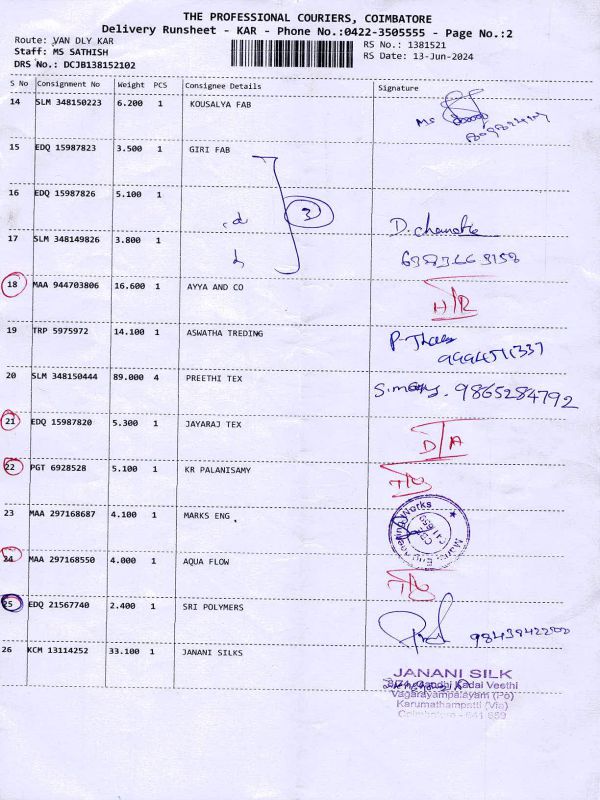 THE PROFESSIONAL COURIERS, COIMBATORE
Delivery Runsheet - KAR - Phone No.:0422-3505555 - Page No.:2
Route: VAN DLY KAR
RS No.: 1381521
Staff: MS SATHISH
RS Date: 13-Jun-2024
DRS No.: DCJB138152102
S No Consignment No Weight PCS Consignee Details Signature
14 SLM 348150223 6.200 1 KOUSALYA FAB
Ms
15 EDQ 15987823 3.500 1 GIRI FAB
3
16 EDQ 15987826 5.100 1
D. Chandra
17 SLM 348149826 3.800 1
18 MAA 944703806 16.600 1 AYYA AND CO
H/R
19 TRP 5975972 14.100 1 ASWATHA TREDING
20 SLM 348150444 89.000 4 PREETHI TEX
9865284792
21 EDQ 15987820 5.300 1 JAYARAJ TEX
D/A
22 PGT 6928528 5.100 1 KR PALANISAMY
23 MAA 297168687 4.100 1 MARKS ENG
24 MAA 297168550 4.000 1 AQUA FLOW
25 EDQ 21567740 2.400 1 SRI POLYMERS
9843942200
26 KCM 13114252 33.100 1 JANANI SILKS
JANANI SILK
Gandhi Kadai Veethi
Vagarayampalayam (Po)
Karumathampatti (Via)
Coimbatore - 641 659